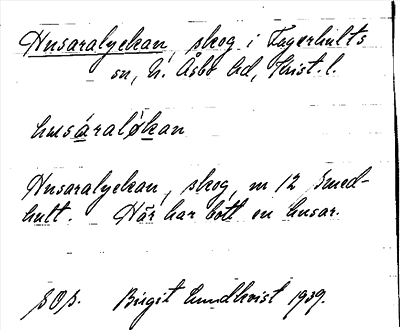 Husaralyckan, skog i Fagerhults
sn, N. Åsbo hd, Krist. l.
husáralỏkan
Husaralyckan, skog, m 12 Smed-
hult. Här har bott en husar.
SOS. Birgit Lundkvist 1939.